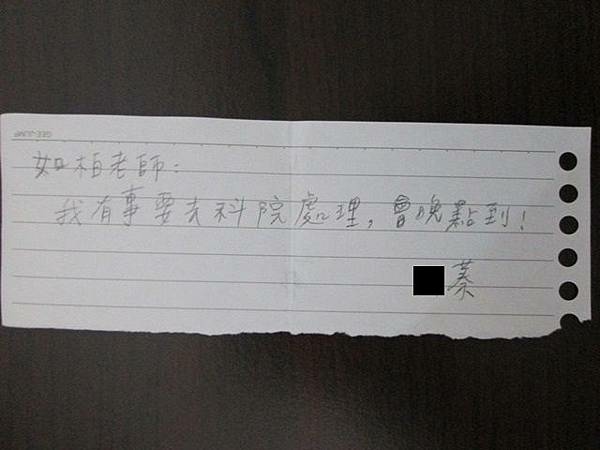 GEE-JUMP
如柏老師：
我有事要去科院處理，會晚點到！
蓁